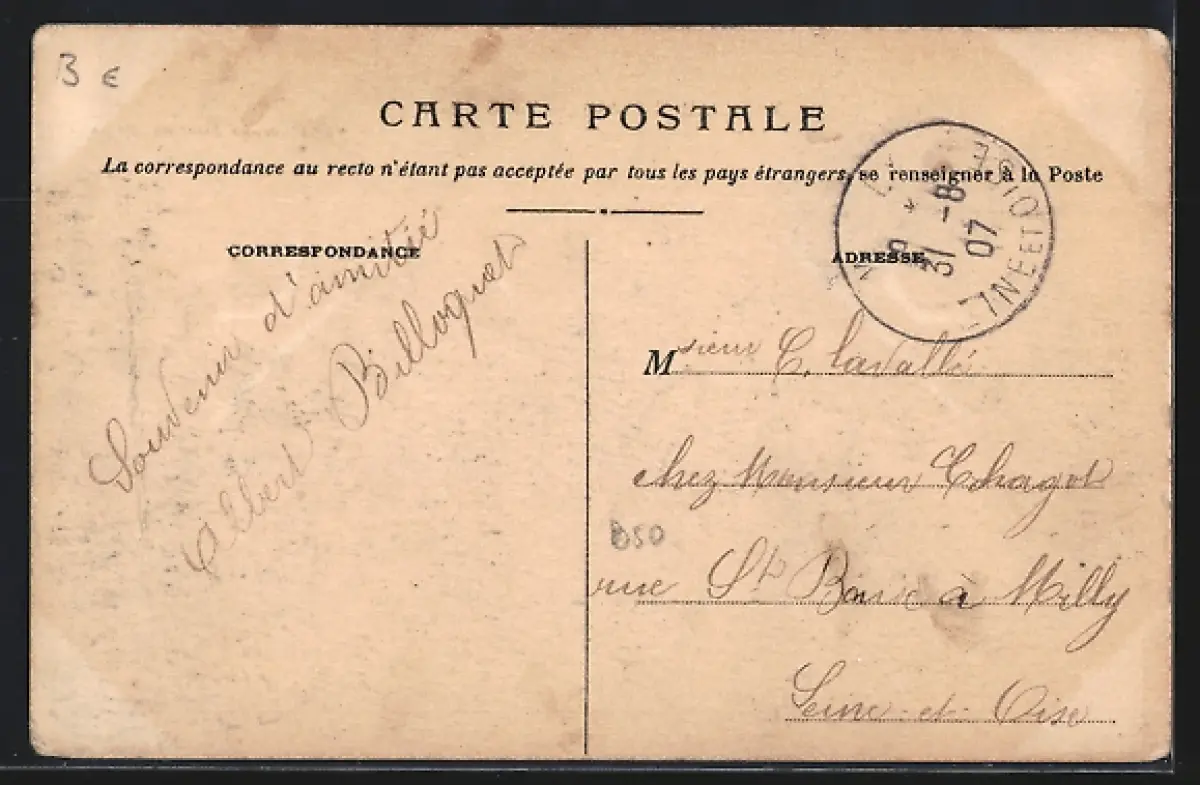 B €
CARTE POSTALE
La correspondance au recto n'étant pas acceptée par tous les pays étrangers, se renseigner à la Poste
CORRESPONDANCE
Souvenir d'amitié
Albert Billoquet
ADRESSE
31 -8
07
Msieur C. Lavallé
chez Monsieur Chagot
B50
rue St à Milly
Seine-et-Oise